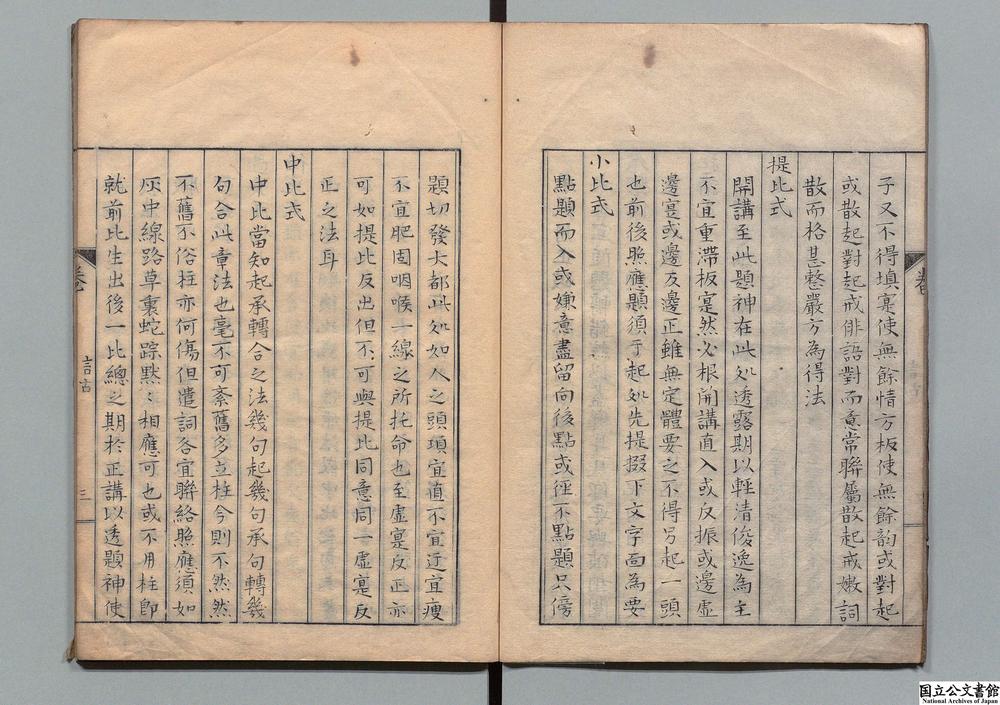 子又不得填寔使無餘情方板使無餘韵或對起
或散起對起戒俳語對而意常聯屬散起戒嫩詞
散而格甚整嚴方為得法
提比式
開講至此題神在此処透露期以輕清俊逸為主
不宜重滯板寔然必根開講直入或反振或邊虛
邊寔或邊反邊正雖無定體要之不得另起一頭
也前後照應題須于起処先提掇下文字面為要
小比式
點題而入或嫌意盡留向後點或徑不點題只傍
題切發大都此処如人之頭項宜値不宜迂宜瘦
不宜肥固咽喉一線之所托命也至虛寔反正亦
可如提比反出但不可與提比同意同一虛寔反
正之法耳
中比式
中比當知起承轉合之法幾句起幾句承句轉幾
句合此章法也毫不可紊舊多立柱今則不然然
不舊不俗柱亦何傷但遣詞各宜聯絡照應須如
灰中線路草裏蛇踪默〻相應可也或不用柱即
就前比生出後一比總之期於正講以透題神使
卷
三
国立公文書館
National Archives of Japan